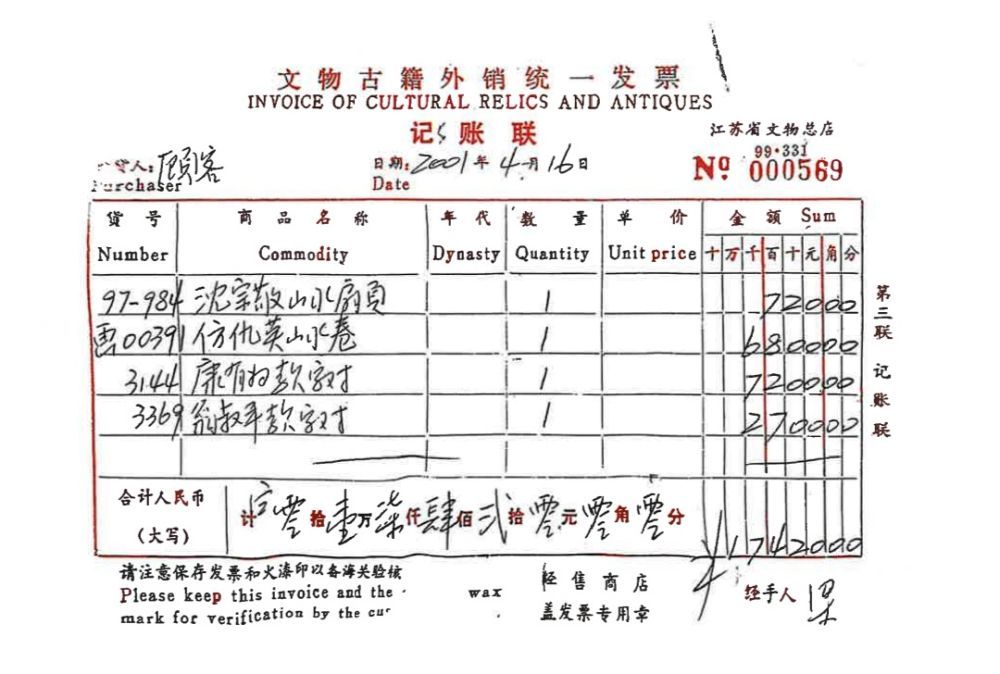 文物古籍外销统一发票
INVOICE OF CULTURAL RELICS AND ANTIQUES
记账联
江苏省文物总店
货人:顾客
日期:2001年4月16日
99·331
Purchaser
Date
Nº 000569
货号 商品名称 年代 数量 单价 金额 Sum
Number Commodity Dynasty Quantity Unit price 十万千百十元角分
97-984 沈宗敬山水扇页 1 72000
书00391 仿仇英山水卷 1 680000
3144 康有为款字对 1 720000
3369 翁叔平款字对 1 270000
合计人民币(大写) 计 零拾壹万柒仟肆佰贰拾零元零角零分 ¥1742000
请注意保存发票和火漆印以备海关验核
Please keep this invoice and the wax
mark for verification by the cus
经售商店
盖发票专用章
经手人 梁
第三联 记账联